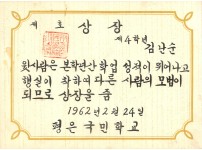 제 호 상장
제4학년
김난순
윗사람은 본학년간 학업 성적이 뛰어나고
행실이 착하여 다른 사람의 모범이
되므로 상장을 줌
1962년 2월 24일
평은국민학교